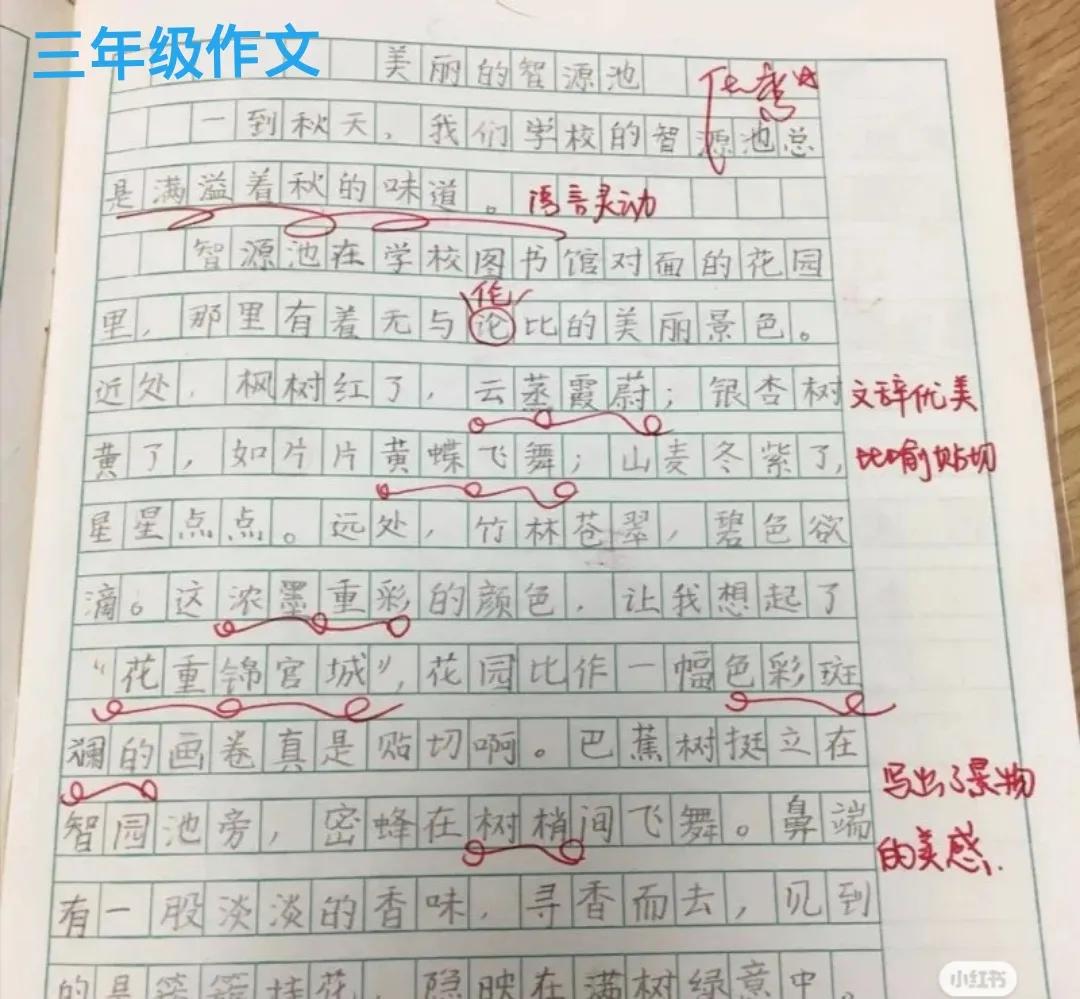 三年级作文
美丽的智源池 优秀
一到秋天，我们学校的智源池总
是满溢着秋的味道。 语言灵动
智源池在学校图书馆对面的花园
伦
里，那里有着无与论比的美丽景色。
近处，枫树红了，云蒸霞蔚；银杏树 文辞优美
黄了，如片片黄蝶飞舞；山麦冬紫了， 比喻贴切
星星点点。远处，竹林苍翠，碧色欲
滴。这浓墨重彩的颜色，让我想起了
“花重锦官城”，花园比作一幅色彩斑
斓的画卷真是贴切啊。巴蕉树挺立在
写出了景物
智园池旁，密蜂在树梢间飞舞。鼻端
的美感.
有一股淡淡的香味，寻香而去，见到
的是簇簇桂花，隐映在满树绿意中。
小红书